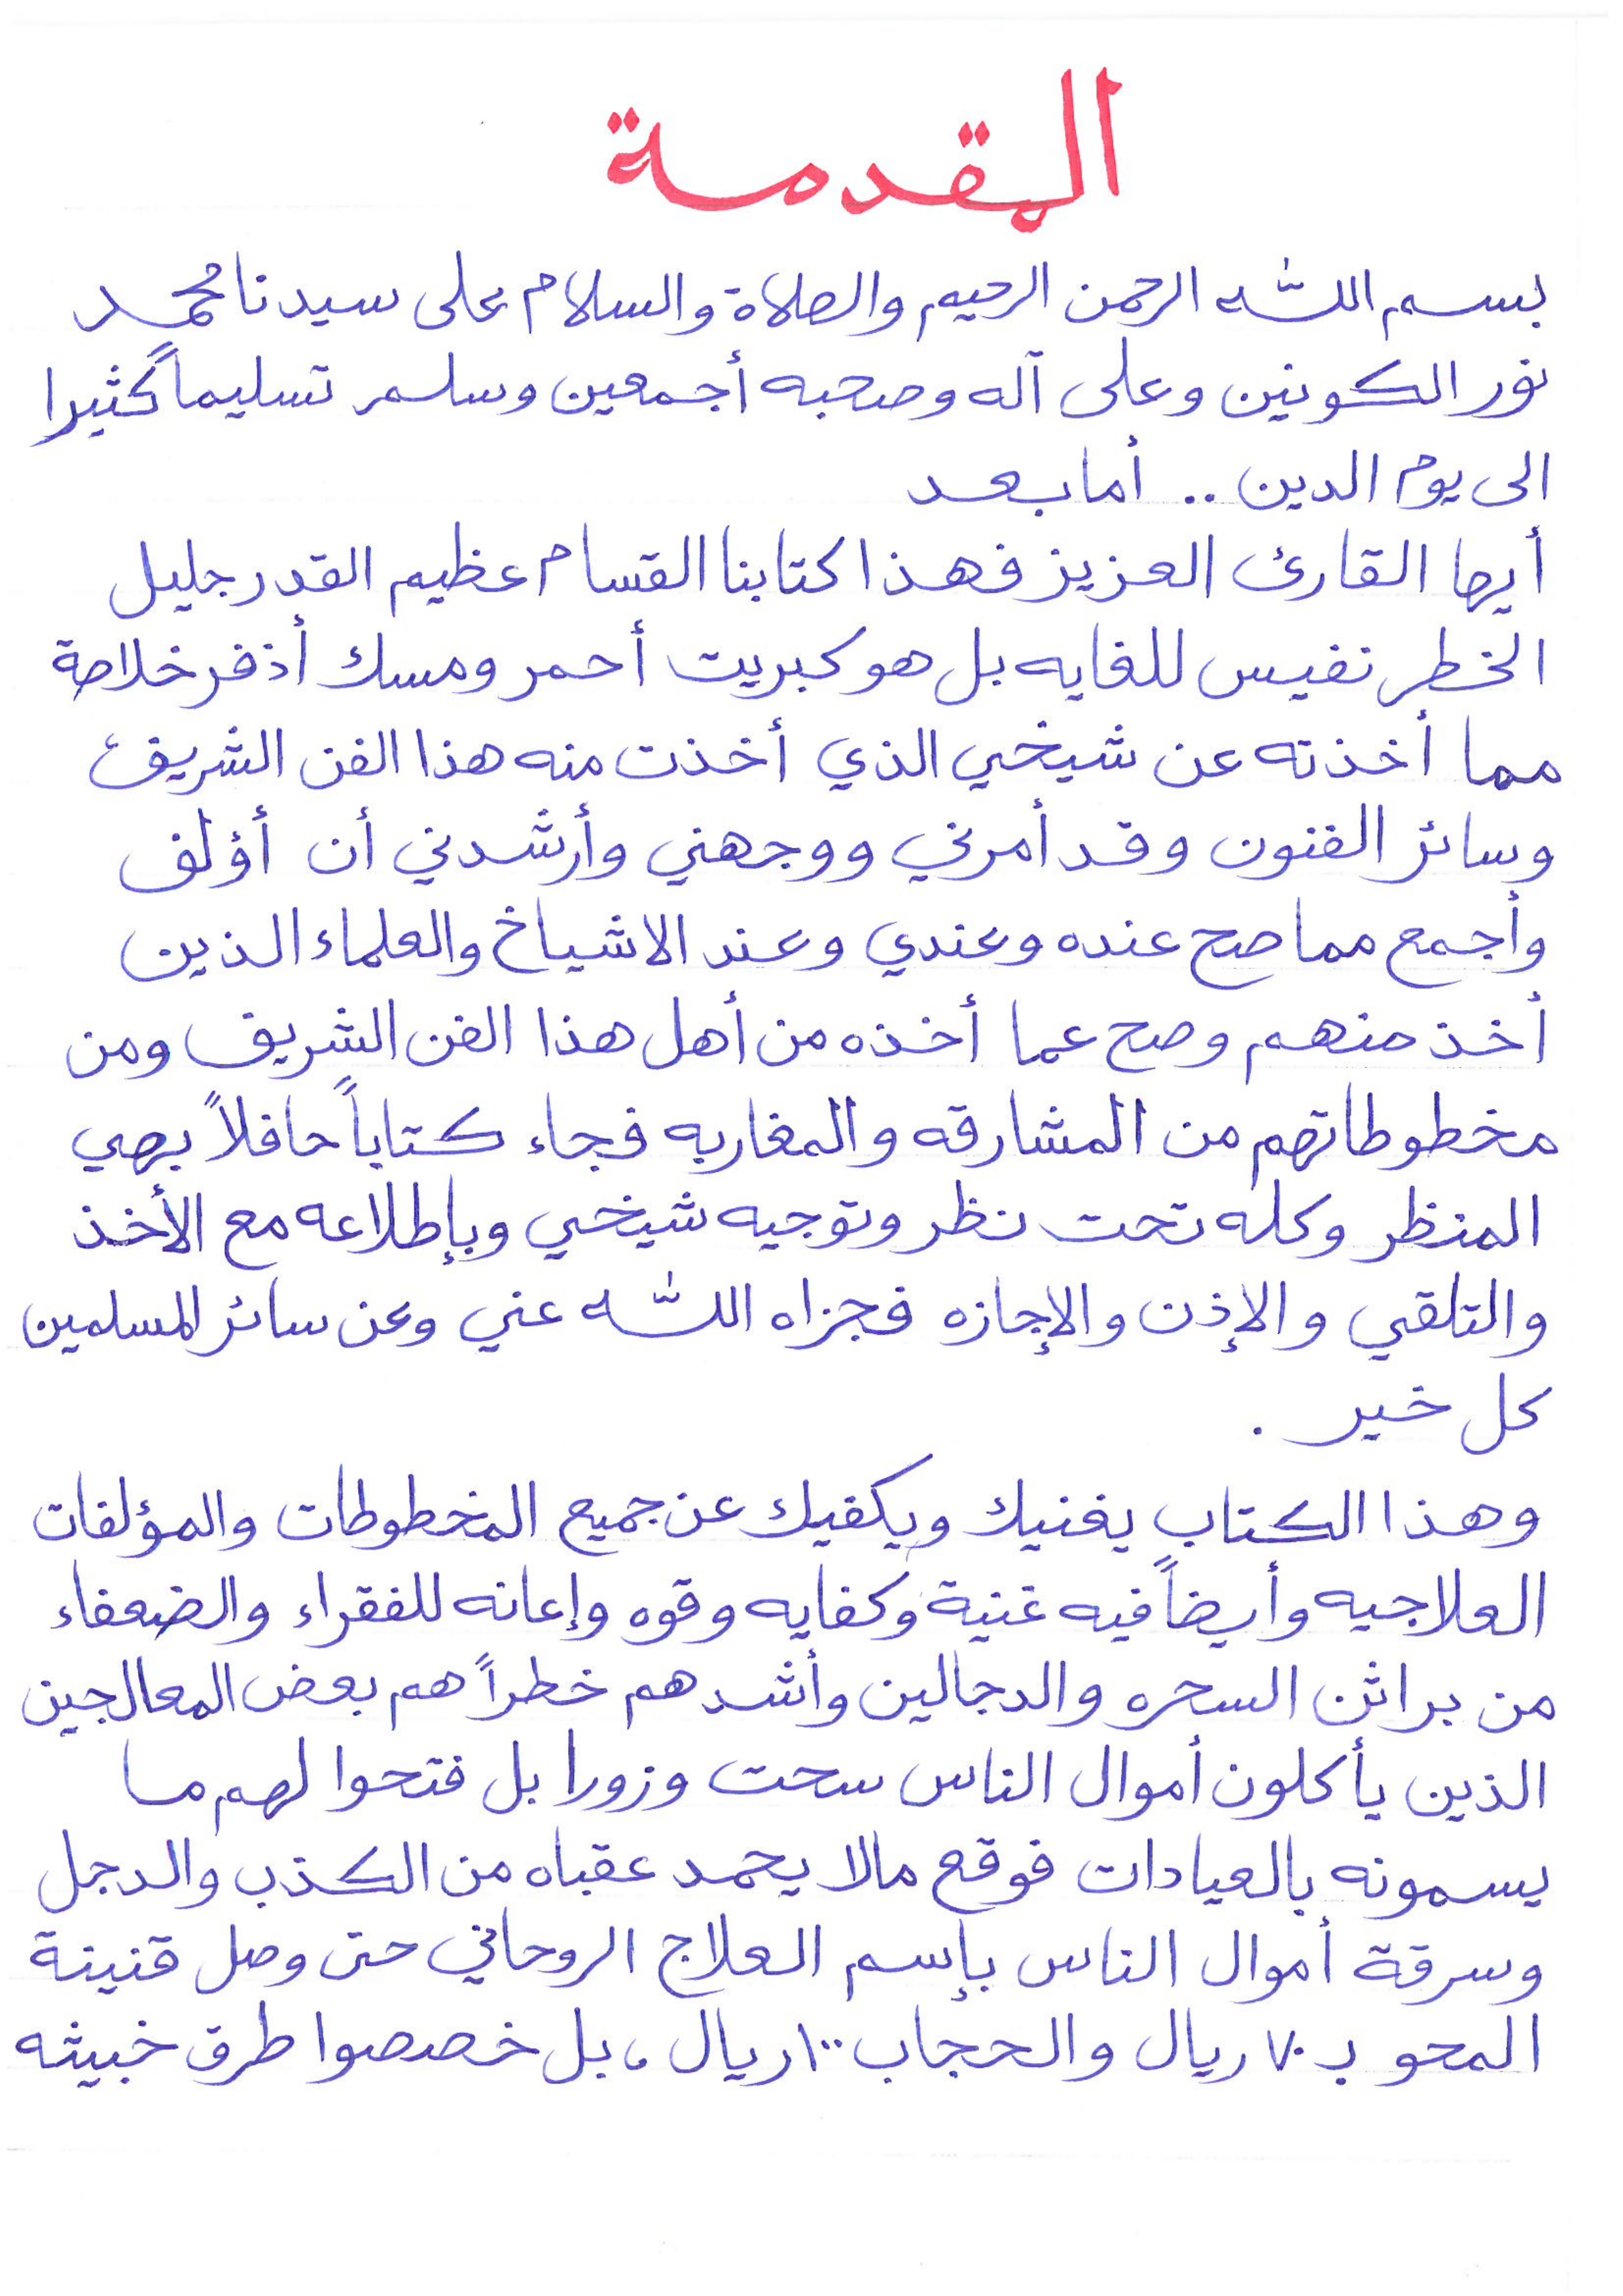 المقدمة
بسم الله الرحمن الرحيم والصلاة والسلام على سيدنا محمد
نور الكونين وعلى آله وصحبه أجمعين وسلم تسليماً كثيرا
الى يوم الدين .. أما بعد
أيها القارئ العزيز فهذا كتابنا القسام عظيم القدر جليل
الخطر نفيس للغايه بل هو كبريت أحمر ومسك أذفر خلاصة
مما أخذته عن شيخي الذي أخذت منه هذا الفن الشريف
وسائر الفنون وقد أمرني ووجهني وأرشدني أن أؤلف
وأجمع مما صح عنده وعندي وعند الاشياخ والعلماء الذين
أخذ منهم وصح عما أخذه من أهل هذا الفن الشريف ومن
مخطوطاتهم من المشارقه والمغاربه فجاء كتاباً حافلاً بهي
المنظر وكله تحت نظر وتوجيه شيخي وبإطلاعه مع الأخذ
والتلقي والإذن والإجازه فجزاه الله عني وعن سائر المسلمين
كل خير .
وهذا الكتاب يغنيك ويكفيك عن جميع المخطوطات والمؤلفات
العلاجيه وأيضاً فيه غنية وكفايه وقوه وإعانه للفقراء والضعفاء
من براثن السحره والدجالين وأشدهم خطراً هم بعض المعالجين
الذين يأكلون أموال الناس سحت وزورا بل فتحوا لهم ما
يسمونه بالعيادات فوقع مالا يحمد عقباه من الكذب والدجل
وسرقة أموال الناس بإسم العلاج الروحاني حتى وصل قنينة
المحو بـ ٧٠ ريال والحجاب ١٠٠ ريال ، بل خصصوا طرق خبيثه